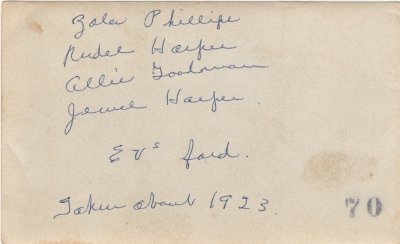 Zola Phillips
Rudel Harper
Allie Goodman
Jewel Harper
E V's ford.
Taken about 1923.
70